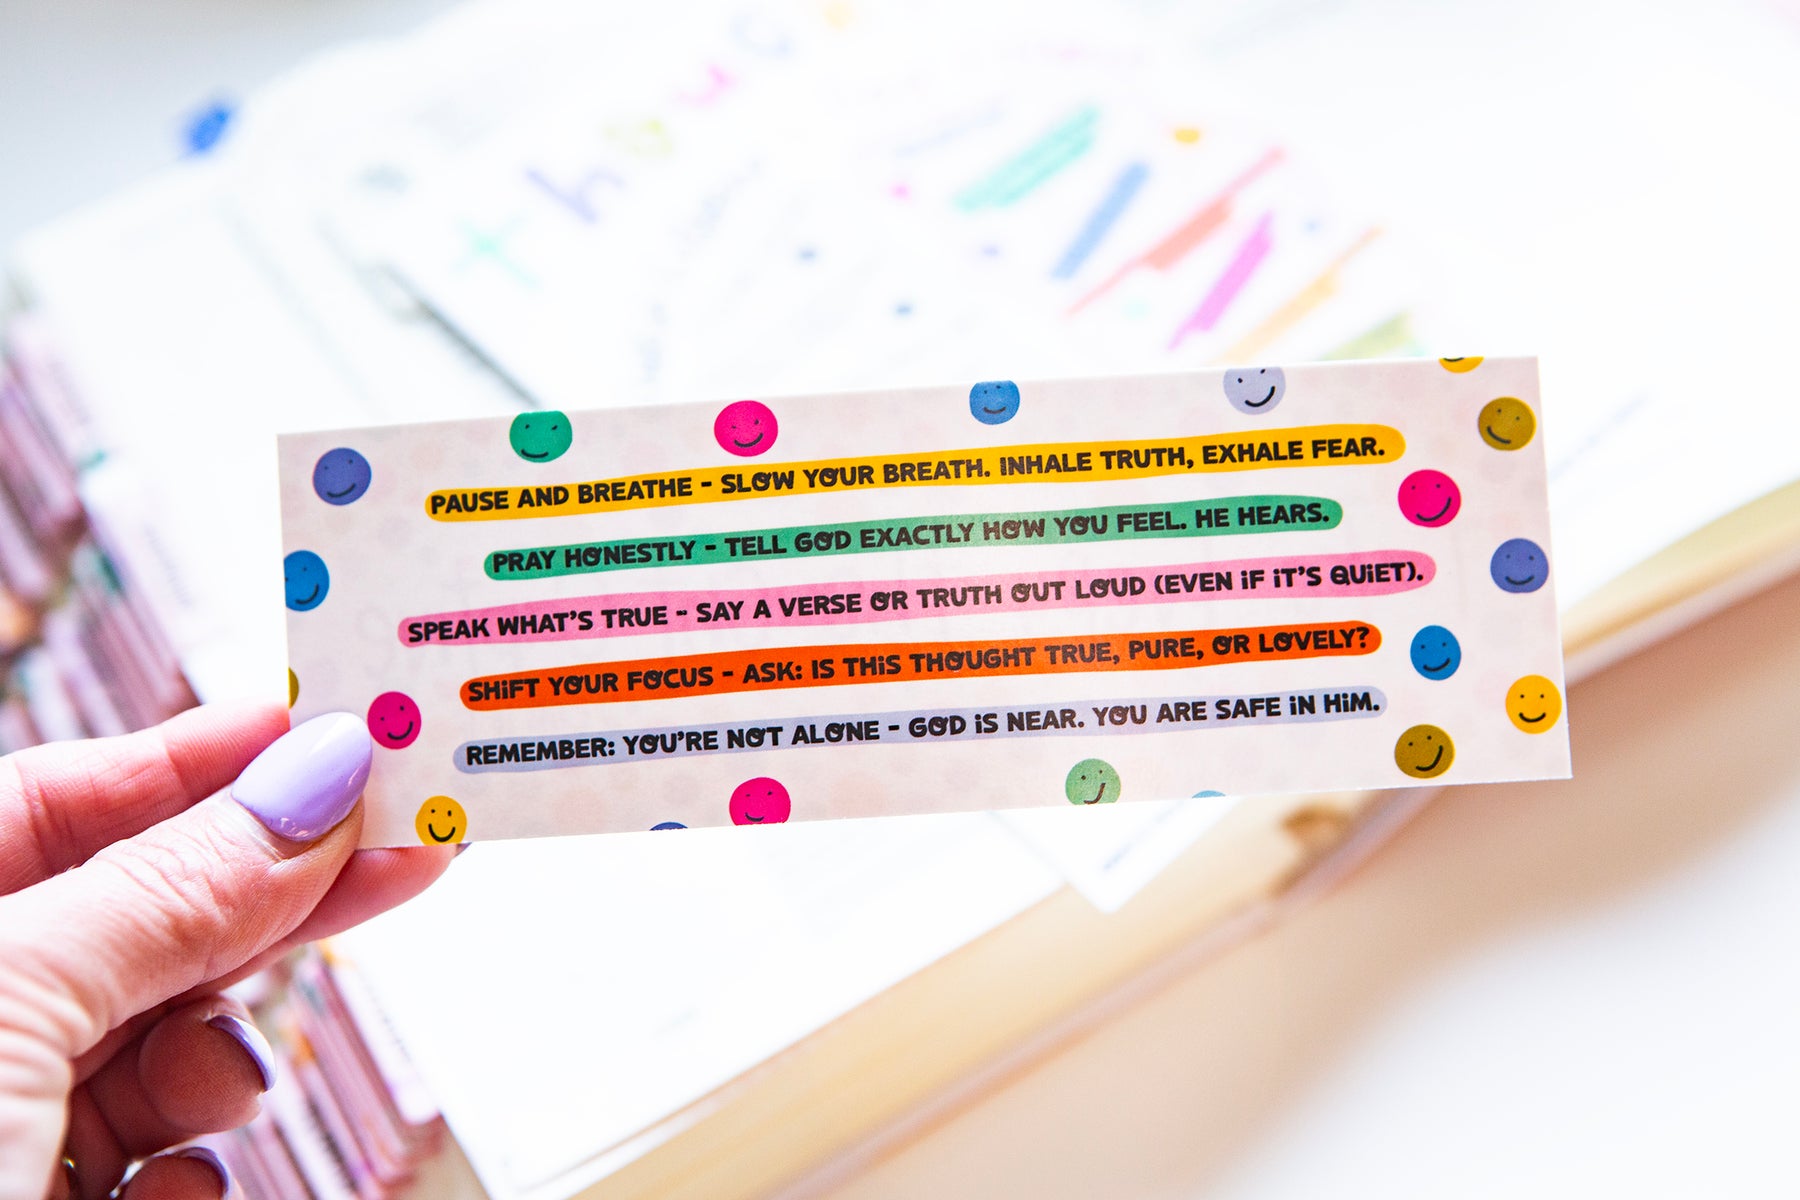 though
PAUSE AND BREATHE - SLOW YOUR BREATH. INHALE TRUTH, EXHALE FEAR.
PRAY HONESTLY - TELL GOD EXACTLY HOW YOU FEEL. HE HEARS.
SPEAK WHAT'S TRUE - SAY A VERSE OR TRUTH OUT LOUD (EVEN IF IT'S QUIET).
SHIFT YOUR FOCUS - ASK: IS THIS THOUGHT TRUE, PURE, OR LOVELY?
REMEMBER: YOU'RE NOT ALONE - GOD IS NEAR. YOU ARE SAFE IN HIM.